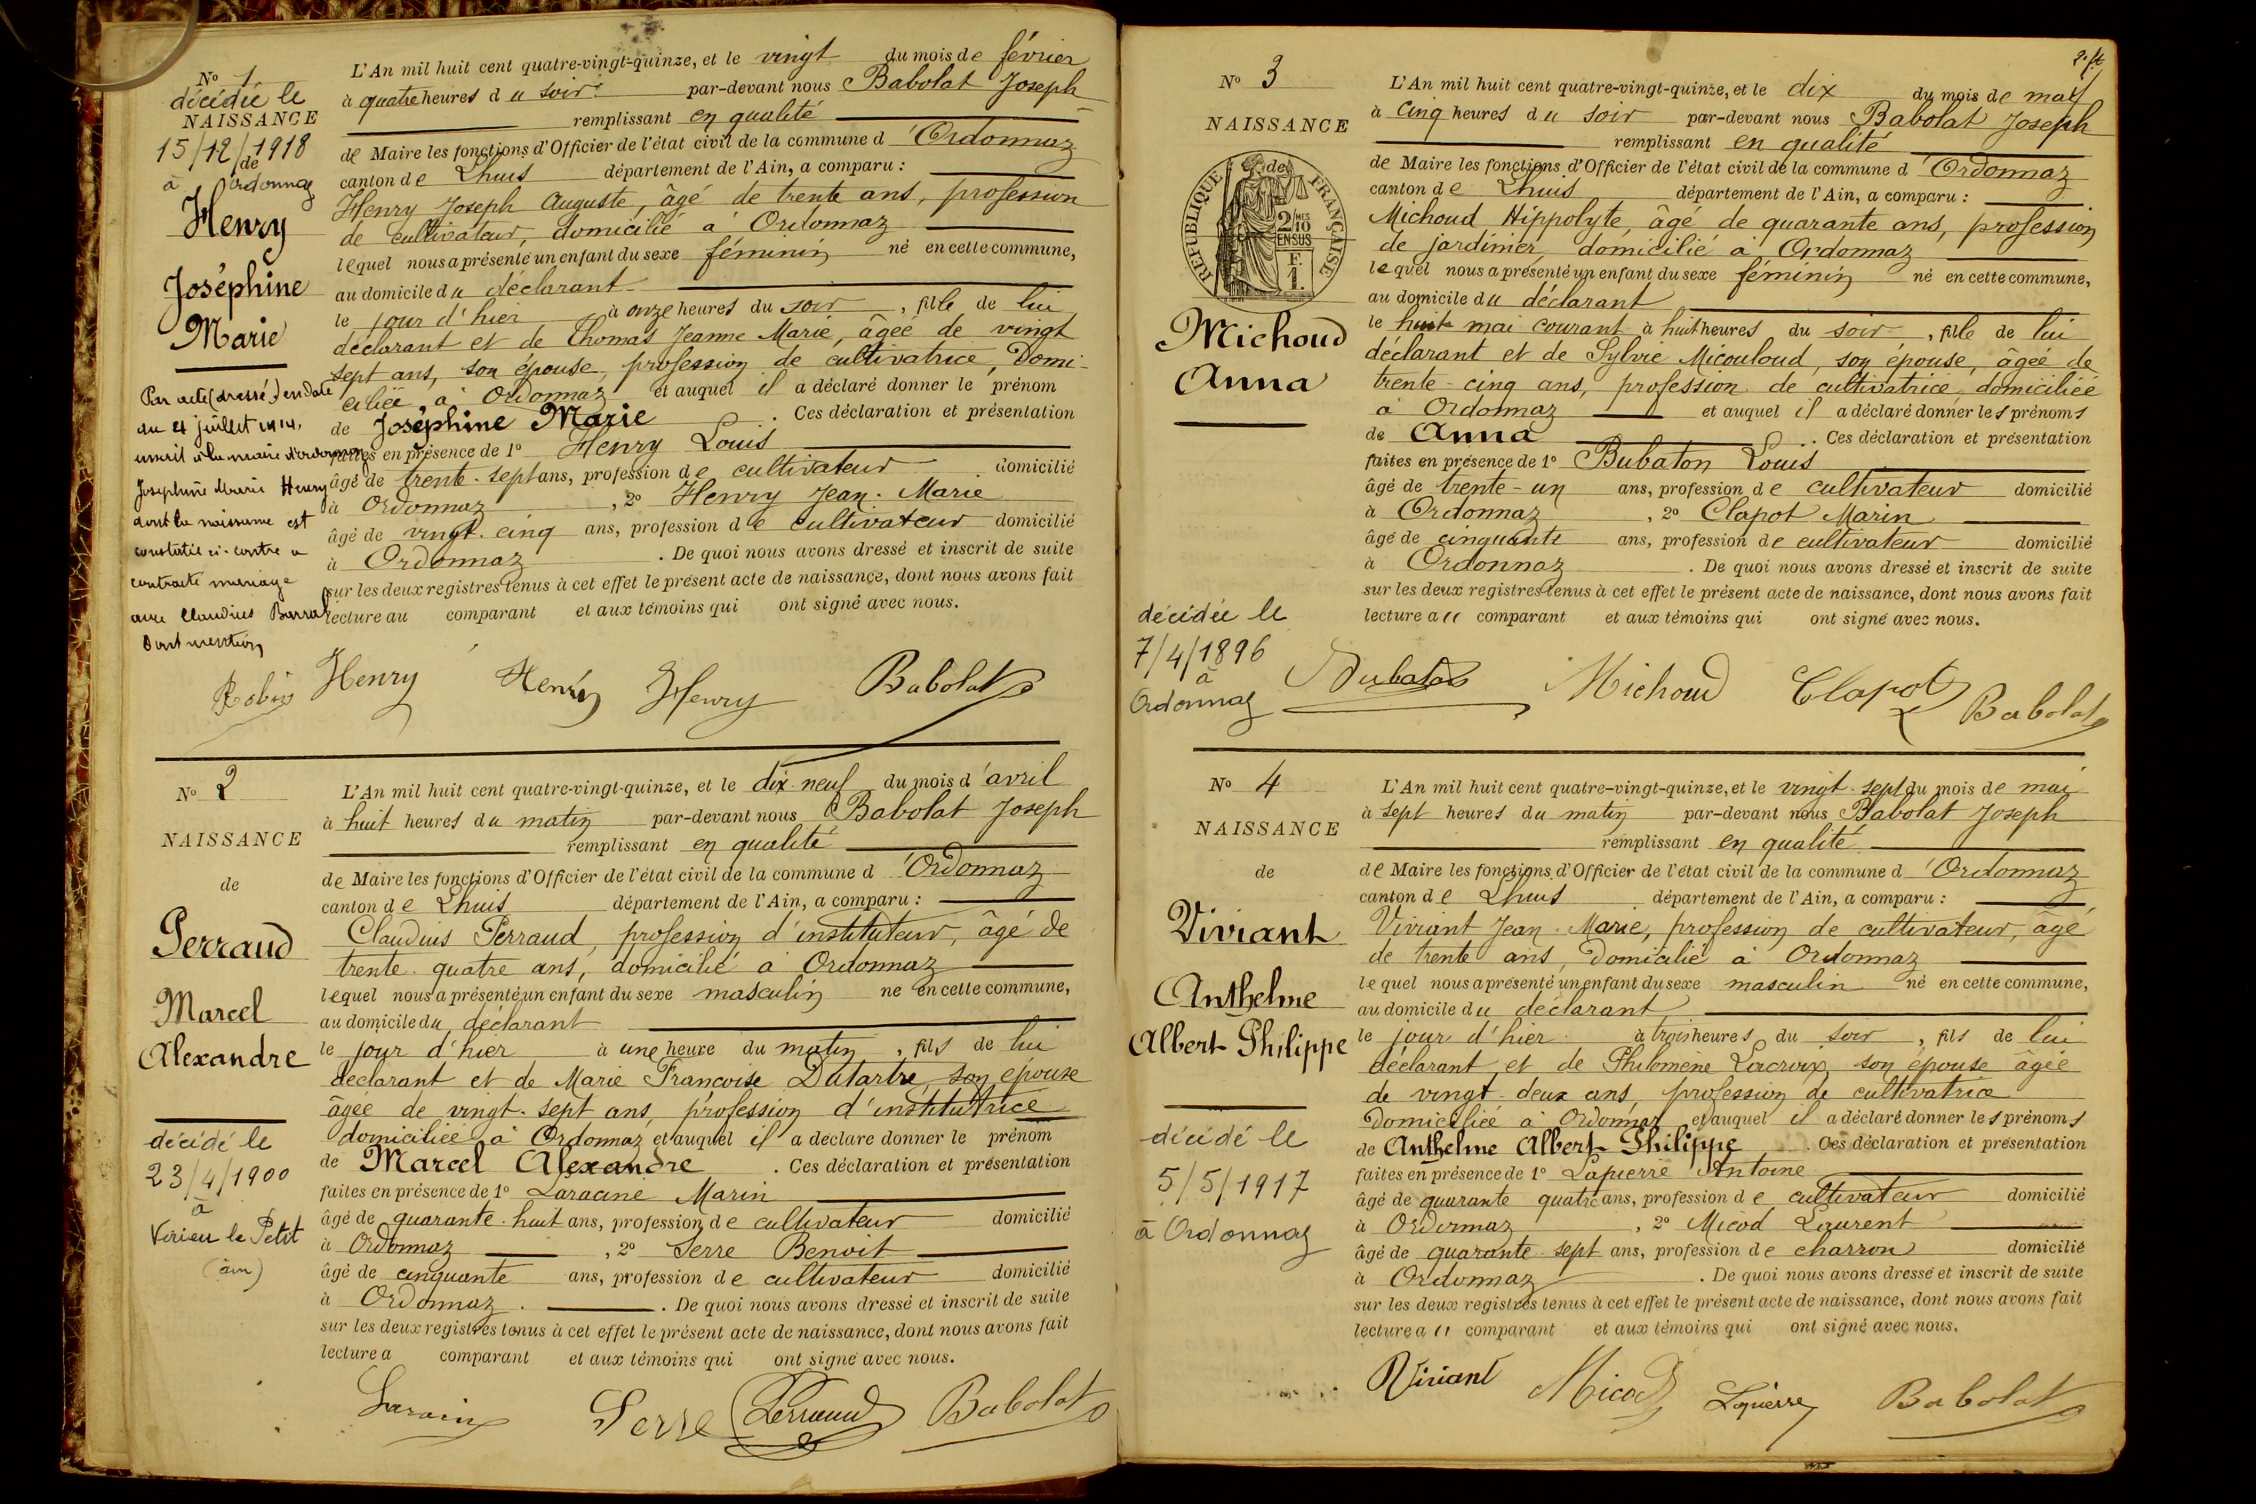 No 1
décédée le
NAISSANCE
15/12/1918
de
à Ordonnaz
Henry
Joséphine
Marie
Par acte (dressé) en date
du 21 juillet 1914,
inscrit à la mairie d'ordonnaz
Joséphine Marie Henry
dont la naissance est
constatée ci-contre a
contracté mariage
avec Claudius Barral
Dont mention
Robin
L'An mil huit cent quatre-vingt-quinze, et le vingt du mois de février
à quatre heures du soir par-devant nous Babolat Joseph
remplissant en qualité
de Maire les fonctions d'Officier de l'état civil de la commune d'Ordonnaz
canton de Lhuis département de l'Ain, a comparu :
Henry Joseph Auguste, âgé de trente ans, profession
de cultivateur, domicilié à Ordonnaz
lequel nous a présenté un enfant du sexe féminin né en cette commune,
au domicile du déclarant
le jour d'hier à onze heures du soir, fille de lui
déclarant et de Thomas Jeanne Marie, âgée de vingt
sept ans, son épouse, profession de cultivatrice, Domi-
ciliée à Ordonnaz et auquel il a déclaré donner le prénom
de Joséphine Marie. Ces déclaration et présentation
faites en présence de 1° Henry Louis
âgé de trente-sept ans, profession de cultivateur domicilié
à Ordonnaz, 2° Henry Jean-Marie
âgé de vingt-cinq ans, profession de cultivateur domicilié
à Ordonnaz. De quoi nous avons dressé et inscrit de suite
sur les deux registres tenus à cet effet le présent acte de naissance, dont nous avons fait
lecture au comparant et aux témoins qui ont signé avec nous.
Henry Henry Henry Babolat
No 2
NAISSANCE
de
Perraud
Marcel
Alexandre
décédé le
23/4/1900
à
Virieu le Petit
(ain)
L'An mil huit cent quatre-vingt-quinze, et le dix-neuf du mois d'avril
à huit heures du matin par-devant nous Babolat Joseph
remplissant en qualité
de Maire les fonctions d'Officier de l'état civil de la commune d'Ordonnaz
canton de Lhuis département de l'Ain, a comparu :
Claudius Perraud, profession d'instituteur, âgé de
trente-quatre ans, domicilié à Ordonnaz
lequel nous a présenté un enfant du sexe masculin né en cette commune,
au domicile du déclarant
le jour d'hier à une heure du matin, fils de lui
déclarant et de Marie Françoise Dutartre, son épouse
âgée de vingt-sept ans, profession d'institutrice
domiciliée à Ordonnaz et auquel il a déclaré donner le prénom
de Marcel Alexandre. Ces déclaration et présentation
faites en présence de 1° Laracine Marin
âgé de quarante-huit ans, profession de cultivateur domicilié
à Ordonnaz, 2° Serre Benoit
âgé de cinquante ans, profession de cultivateur domicilié
à Ordonnaz. De quoi nous avons dressé et inscrit de suite
sur les deux registres tenus à cet effet le présent acte de naissance, dont nous avons fait
lecture a comparant et aux témoins qui ont signé avec nous.
Serre Perraud Babolat
No 3
NAISSANCE
de
RÉPUBLIQUE FRANÇAISE
2 MES
10
EN SUS
F.
1.
Michoud
Anna
décédée le
7/4/1896
à
Ordonnaz
L'An mil huit cent quatre-vingt-quinze, et le dix du mois de mai
à cinq heures du soir par-devant nous Babolat Joseph
remplissant en qualité
de Maire les fonctions d'Officier de l'état civil de la commune d'Ordonnaz
canton de Lhuis département de l'Ain, a comparu :
Michoud Hippolyte, âgé de quarante ans, profession
de jardinier, domicilié à Ordonnaz
lequel nous a présenté un enfant du sexe féminin né en cette commune,
au domicile du déclarant
le huit mai courant à huit heures du soir, fille de lui
déclarant et de Sylvie Micouloud, son épouse, âgée de
trente-cinq ans, profession de cultivatrice, domiciliée
à Ordonnaz et auquel il a déclaré donner les prénoms
de Anna. Ces déclaration et présentation
faites en présence de 1° Bubaton Louis
âgé de trente-un ans, profession de cultivateur domicilié
à Ordonnaz, 2° Clapot Marin
âgé de cinquante ans, profession de cultivateur domicilié
à Ordonnaz. De quoi nous avons dressé et inscrit de suite
sur les deux registres tenus à cet effet le présent acte de naissance, dont nous avons fait
lecture au comparant et aux témoins qui ont signé avec nous.
Bubaton Michoud Clapot Babolat
No 4
NAISSANCE
de
Viviant
Anthelme
Albert Philippe
décidé le
5/5/1917
à Ordonnaz
L'An mil huit cent quatre-vingt-quinze, et le vingt-sept du mois de mai
à sept heures du matin par-devant nous Babolat Joseph
remplissant en qualité
de Maire les fonctions d'Officier de l'état civil de la commune d'Ordonnaz
canton de Lhuis département de l'Ain, a comparu :
Viviant Jean-Marie, profession de cultivateur, âgé
de trente ans, Domicilié à Ordonnaz
lequel nous a présenté un enfant du sexe masculin né en cette commune,
au domicile du déclarant
le jour d'hier à trois heures du soir, fils de lui
déclarant et de Philomène Lacroix, son épouse âgée
de vingt-deux ans, profession de cultivatrice
Domiciliée à Ordonnaz et auquel il a déclaré donner les prénoms
de Anthelme Albert Philippe. Ces déclaration et présentation
faites en présence de 1° Lapierre Antoine
âgé de quarante quatre ans, profession de cultivateur domicilié
à Ordonnaz, 2° Micod Laurent
âgé de quarante-sept ans, profession de charron domicilié
à Ordonnaz. De quoi nous avons dressé et inscrit de suite
sur les deux registres tenus à cet effet le présent acte de naissance, dont nous avons fait
lecture au comparant et aux témoins qui ont signé avec nous.
Viviant Micod Lapierre Babolat